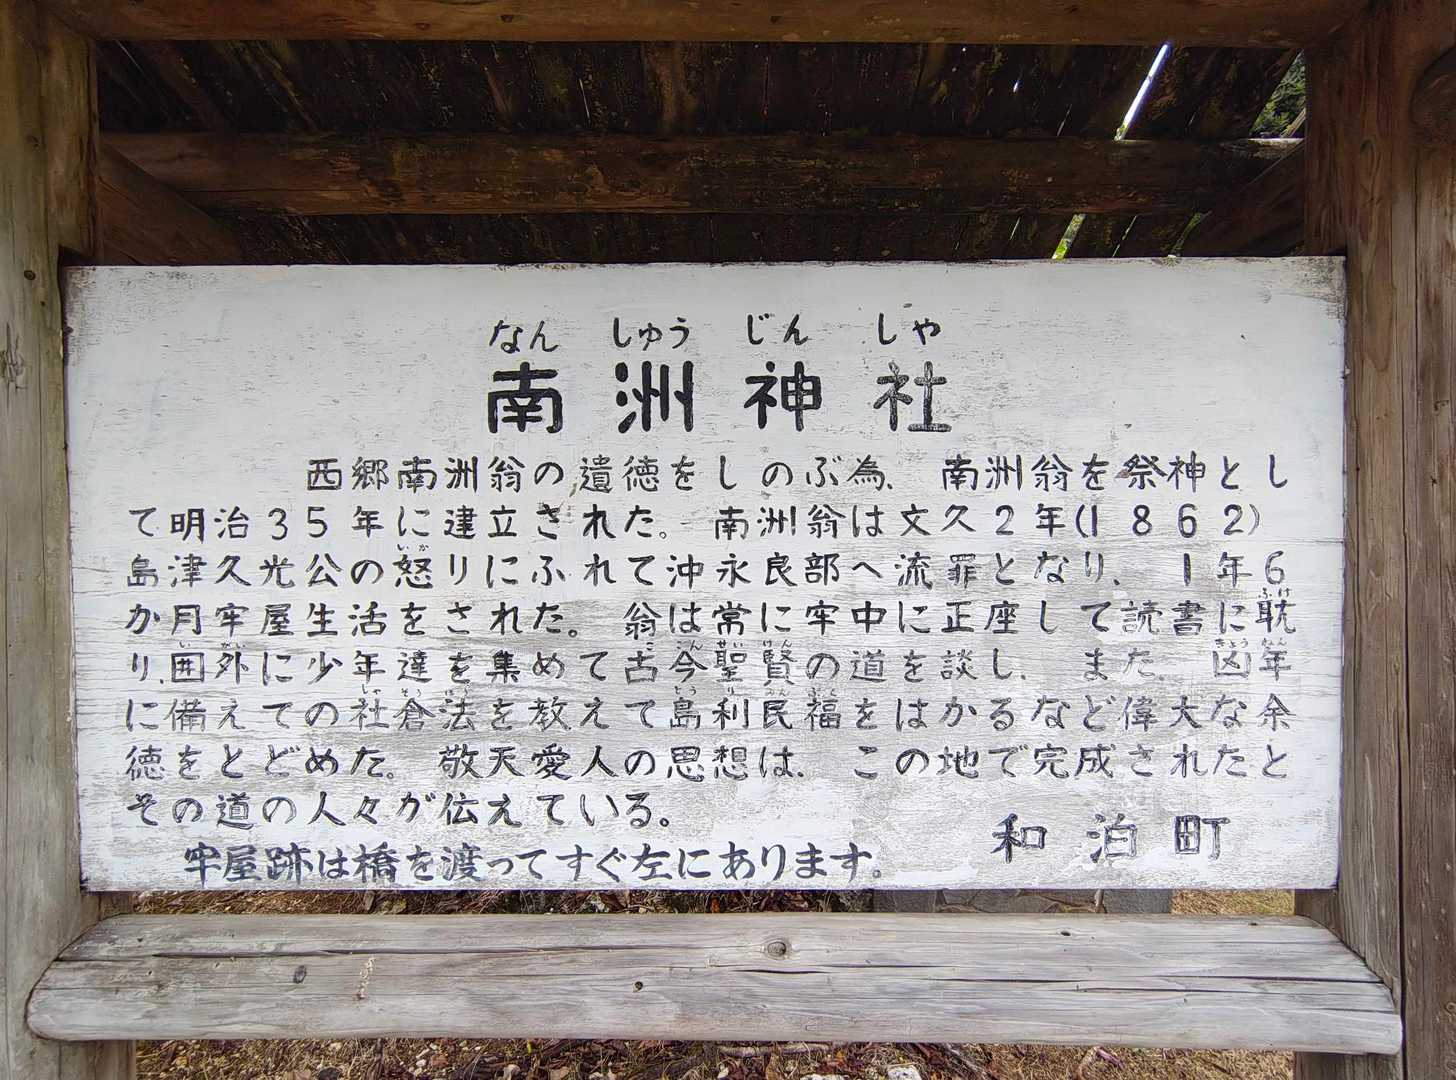 なん しゅう じん しゃ
南洲神社
西郷南洲翁の遺徳をしのぶ為、南洲翁を祭神とし
て明治35年に建立された。南洲翁は文久2年(1862)
いか
島津久光公の怒りにふれて沖永良部へ流罪となり、1年6
ふけ
か月牢屋生活をされた。翁は常に牢中に正座して読書に耽
い がい こ こん せい けん きょう ねん
り、囲外に少年達を集めて古今聖賢の道を談し、また凶年
しゃ そう ほう とう り みん ふく
に備えての社倉法を教えて島利民福をはかるなど偉大な余
徳をとどめた。敬天愛人の思想は、この地で完成されたと
その道の人々が伝えている。
和泊町
牢屋跡は橋を渡ってすぐ左にあります。